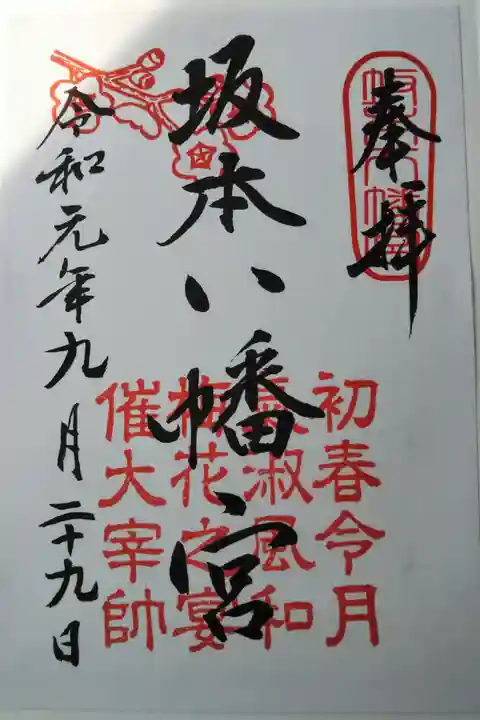 奉拝
坂本八幡宮
初春令月
淑風和
梅花之宴
催大宰帥
令和元年九月二十九日